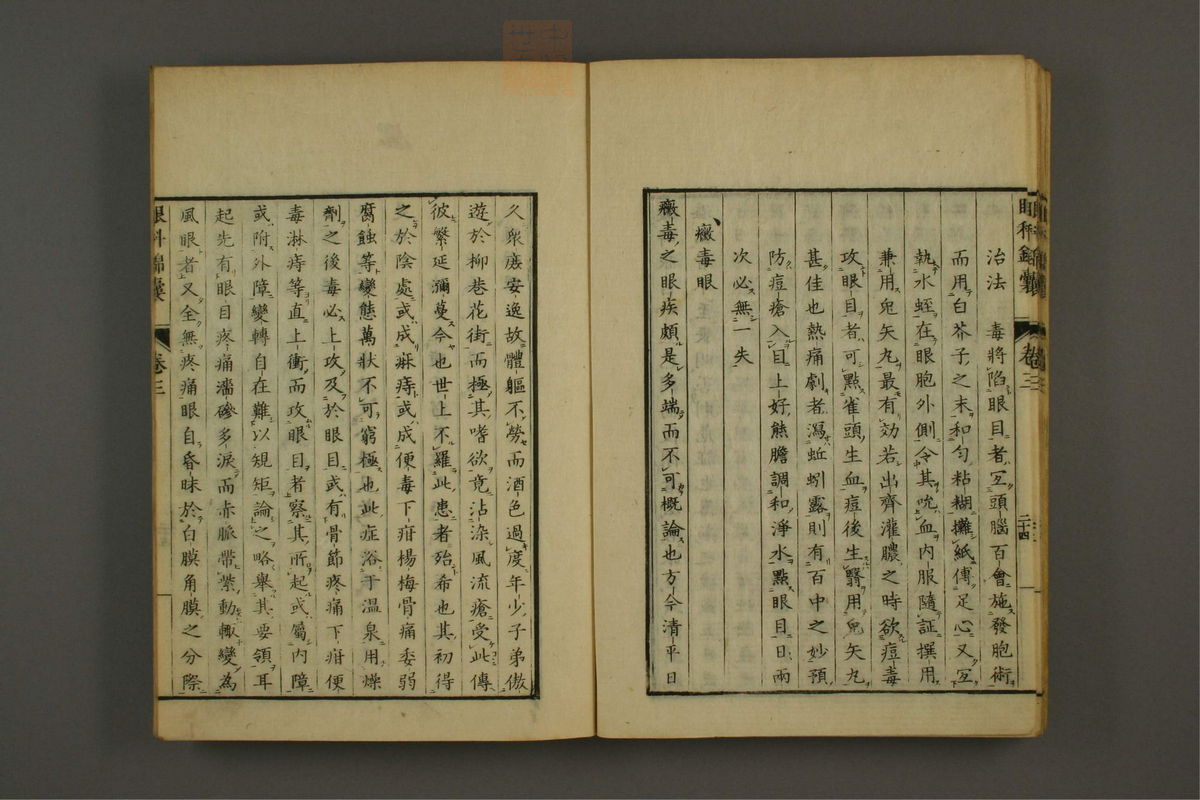 眼科錦囊 卷三 二十四
治法 毒將陷眼目者宜頭腦百會施發胞術
而用白芥子之末和勻粘糊攤紙傳足心又宜
執水蛭在眼胞外側令其吮血內服隨証撰用
兼用兔矢丸最有效若出齊灌膿之時欲痘毒
攻眼目者可點雀頭生血痘後生翳用兔矢丸
甚佳也熱痛劇者瀉蚯蚓露則有百中之妙預
防痘瘡入目上好熊膽調和淨水點眼目日兩
次必無一失
黴毒眼
黴毒之眼疾頗是多端而不可概論也方今清平日
久衆庶安逸故體軀不勞而酒色過度年少子弟傲
遊於柳巷花街而極其嗜欲竟沾染風流瘡受此傳
彼繁延瀰蔓今也世上不羅此患者殆希也其初得
之於陰處或成麻痔或成便毒下疳楊梅骨痛委弱
腐蝕等變態萬狀不可窮極也此症浴于温泉用燥
劑之後毒必上攻及於眼目或有骨節疼痛下疳便
毒淋痔等直上衝而攻眼目者察其所起或屬內障
或附外障變轉自在難以規矩論之略舉其要領耳
起先有眼目疼痛濇磣多淚而赤脈帶紫動輙變為
風眼者又全無疼痛眼自昏昧於白膜角膜之分際
眼科錦囊 卷三